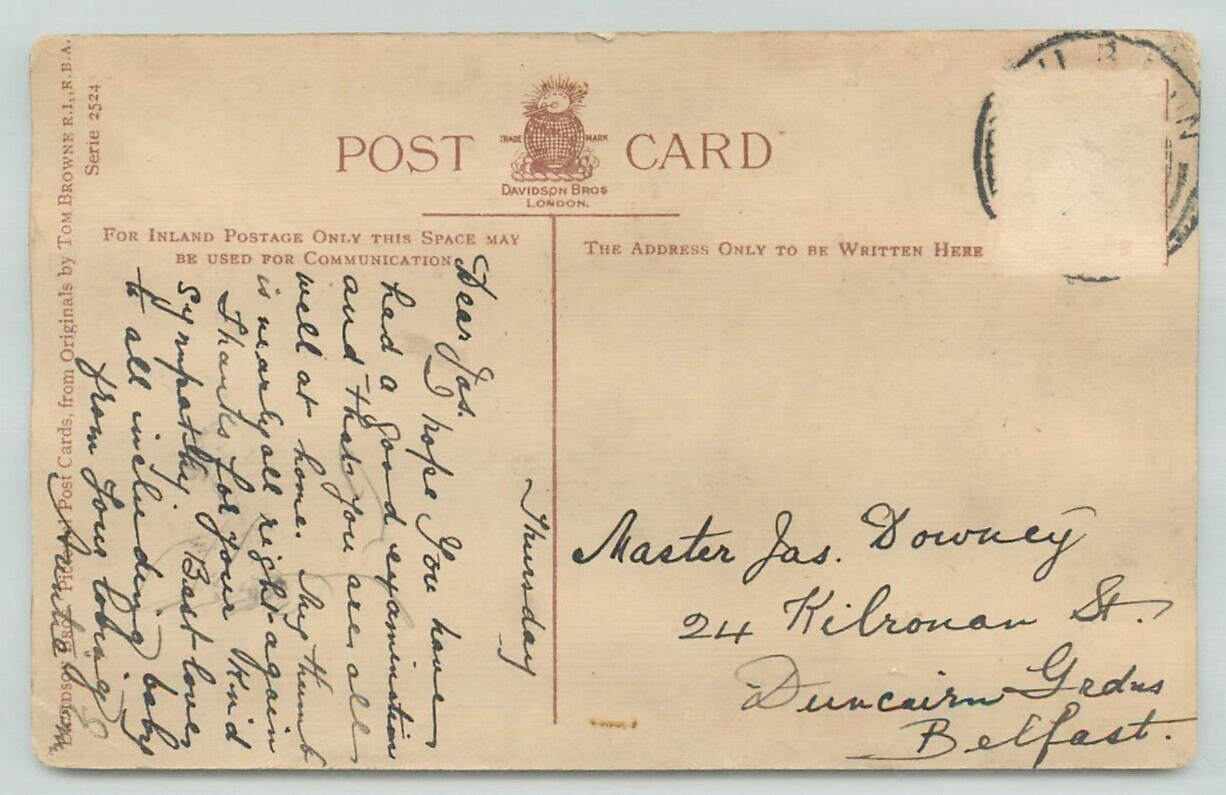 POST CARD
TRADE MARK
DAVIDSON BROS
LONDON.
FOR INLAND POSTAGE ONLY THIS SPACE MAY
BE USED FOR COMMUNICATION
THE ADDRESS ONLY TO BE WRITTEN HERE
Serie 2524
DAVIDSON BROS. Pictorial Post Cards, from Originals by TOM BROWNE R.I., R.B.A.
Thursday
Dear Jas.
I hope you have
had a good examination
and that you are all
well at home. My thumb
is nearly all right again
Thanks for your kind
sympathy. Best love
to all including baby
from your loving
Auntie
Master Jas. Downey
24 Kilronan St.
Duncairn Grdns
Belfast.